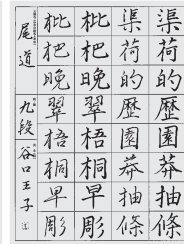 渠荷的歷園莽抽條
渠荷的歷園莽抽條
枇杷晚翠梧桐早彫
枇杷晚翠梧桐早彫
尾道 九段 谷口王子